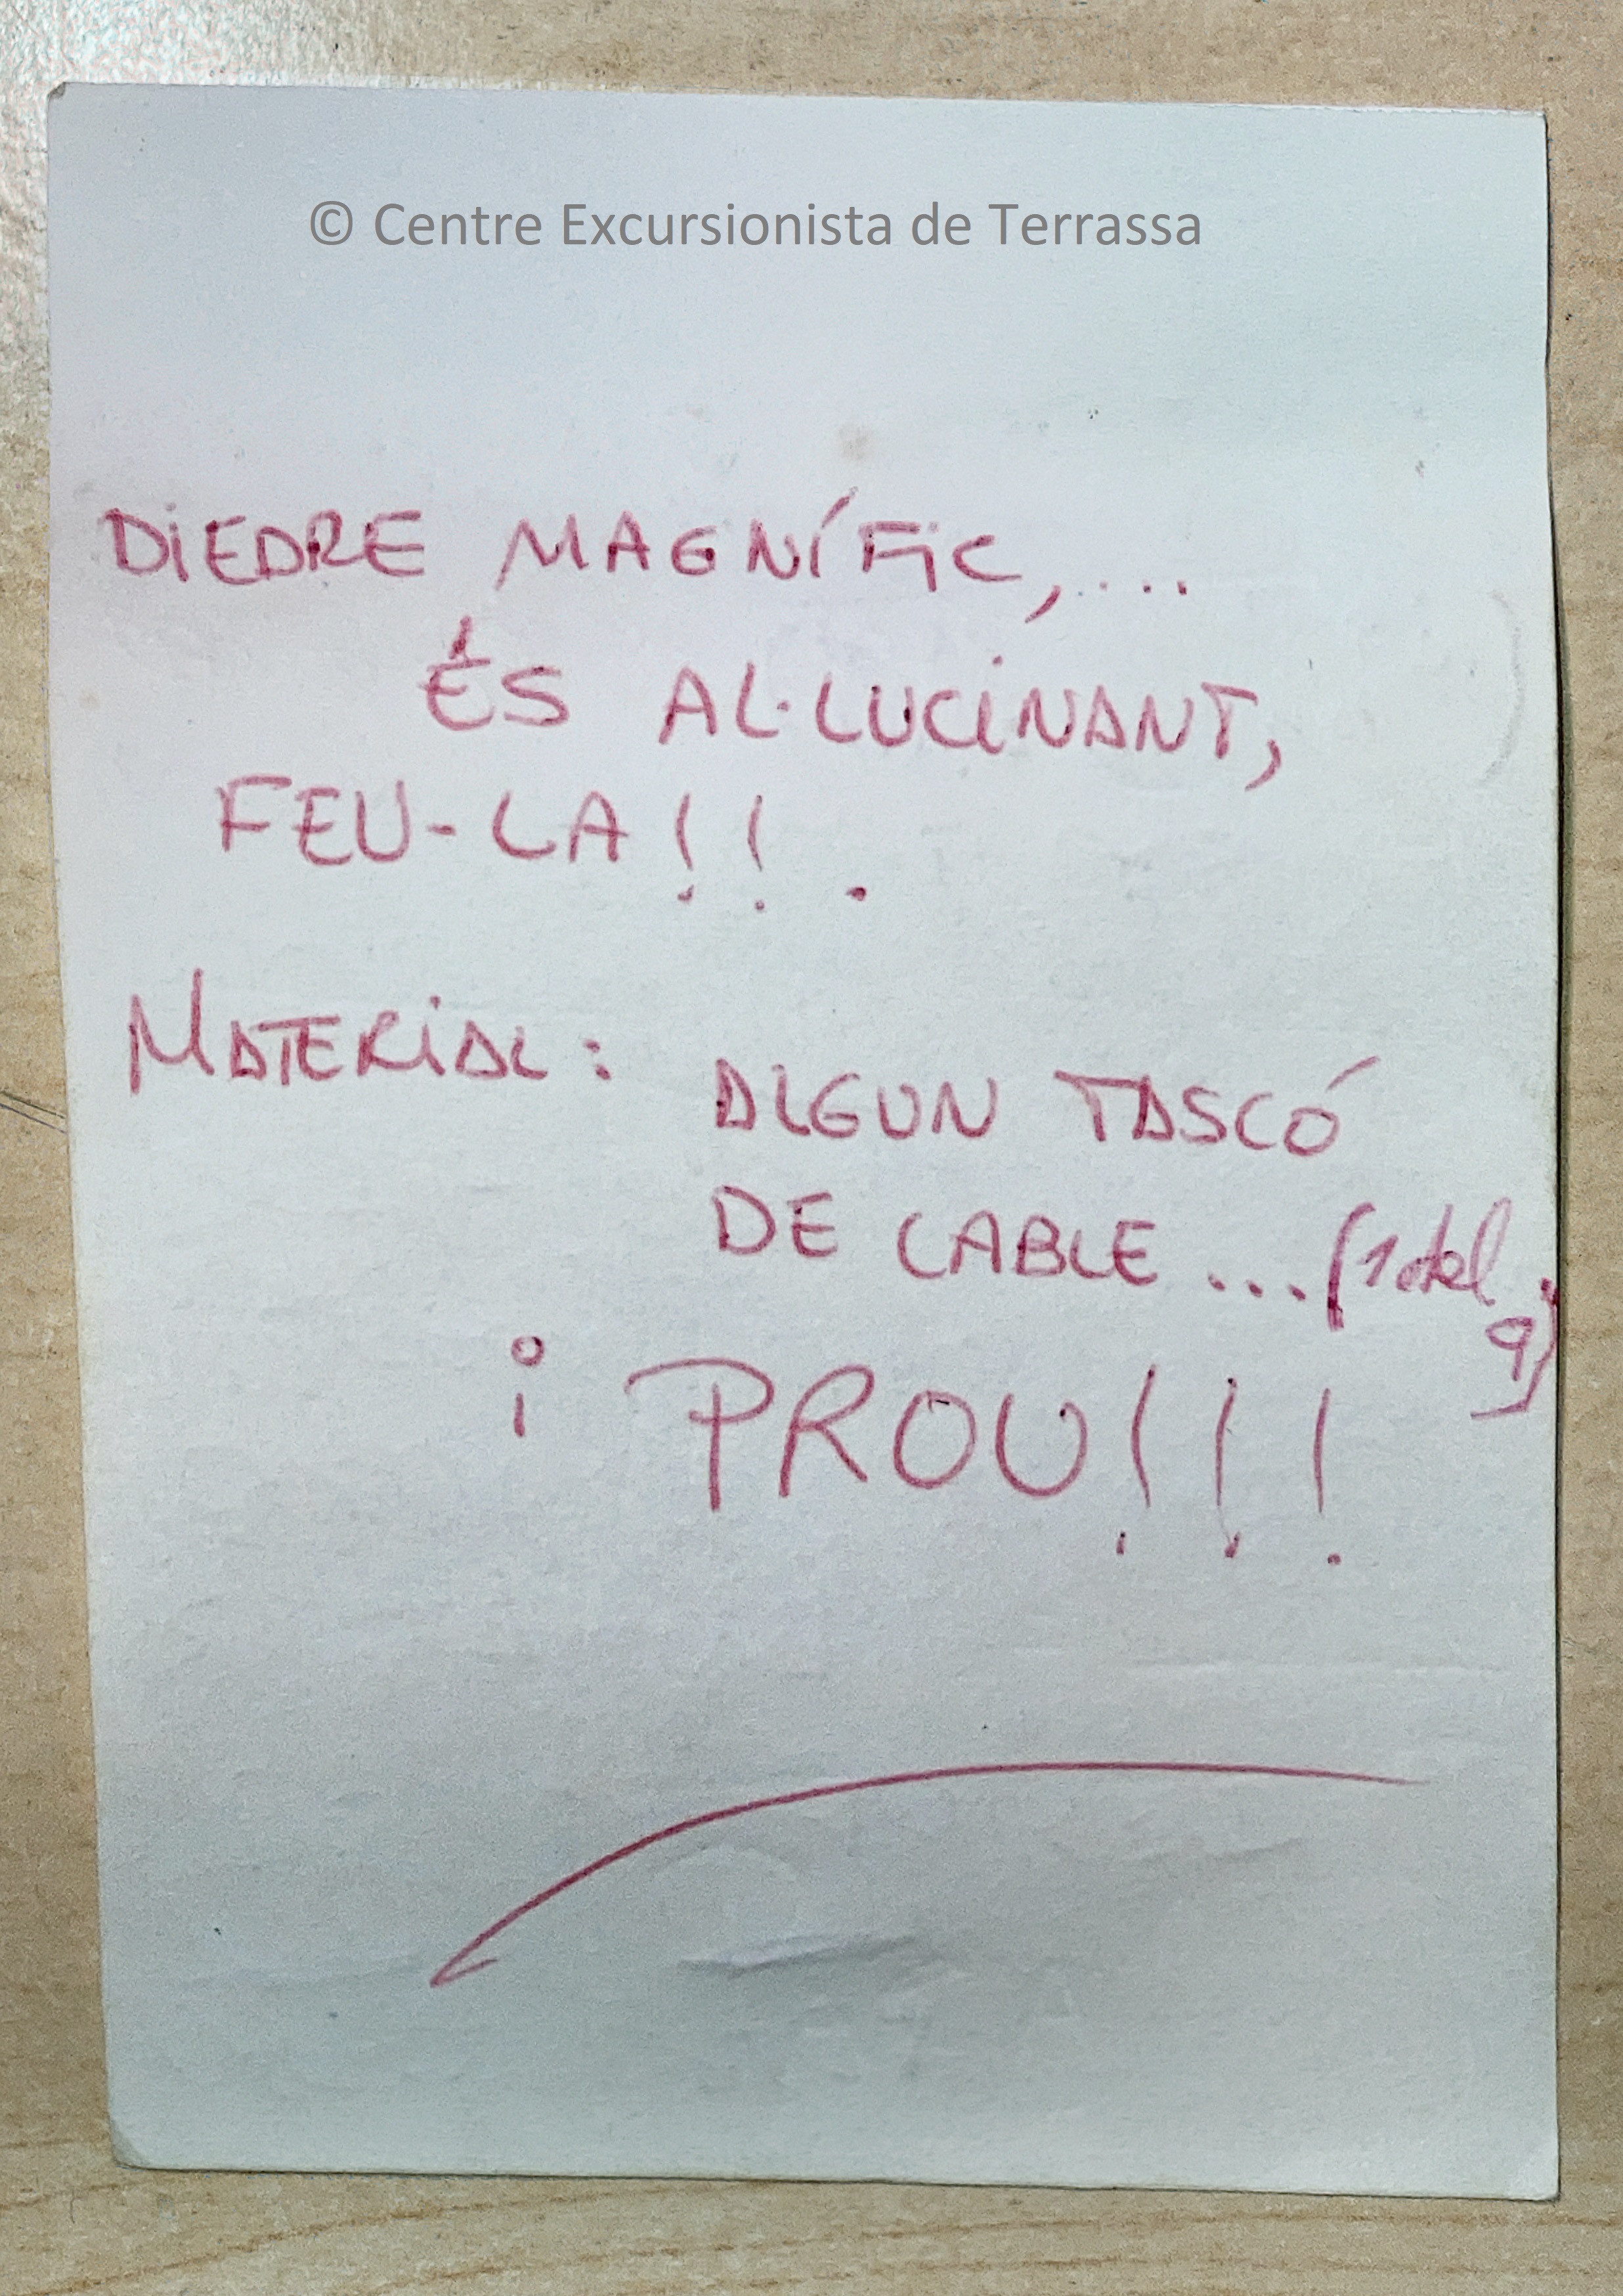 © Centre Excursionista de Terrassa
DIEDRE MAGNÍFIC,....
ÉS AL·LUCINANT,
FEU-LA!!.
MATERIAL: ALGUN TASCÓ
DE CABLE ... (1 del
9)
i PROU!!!